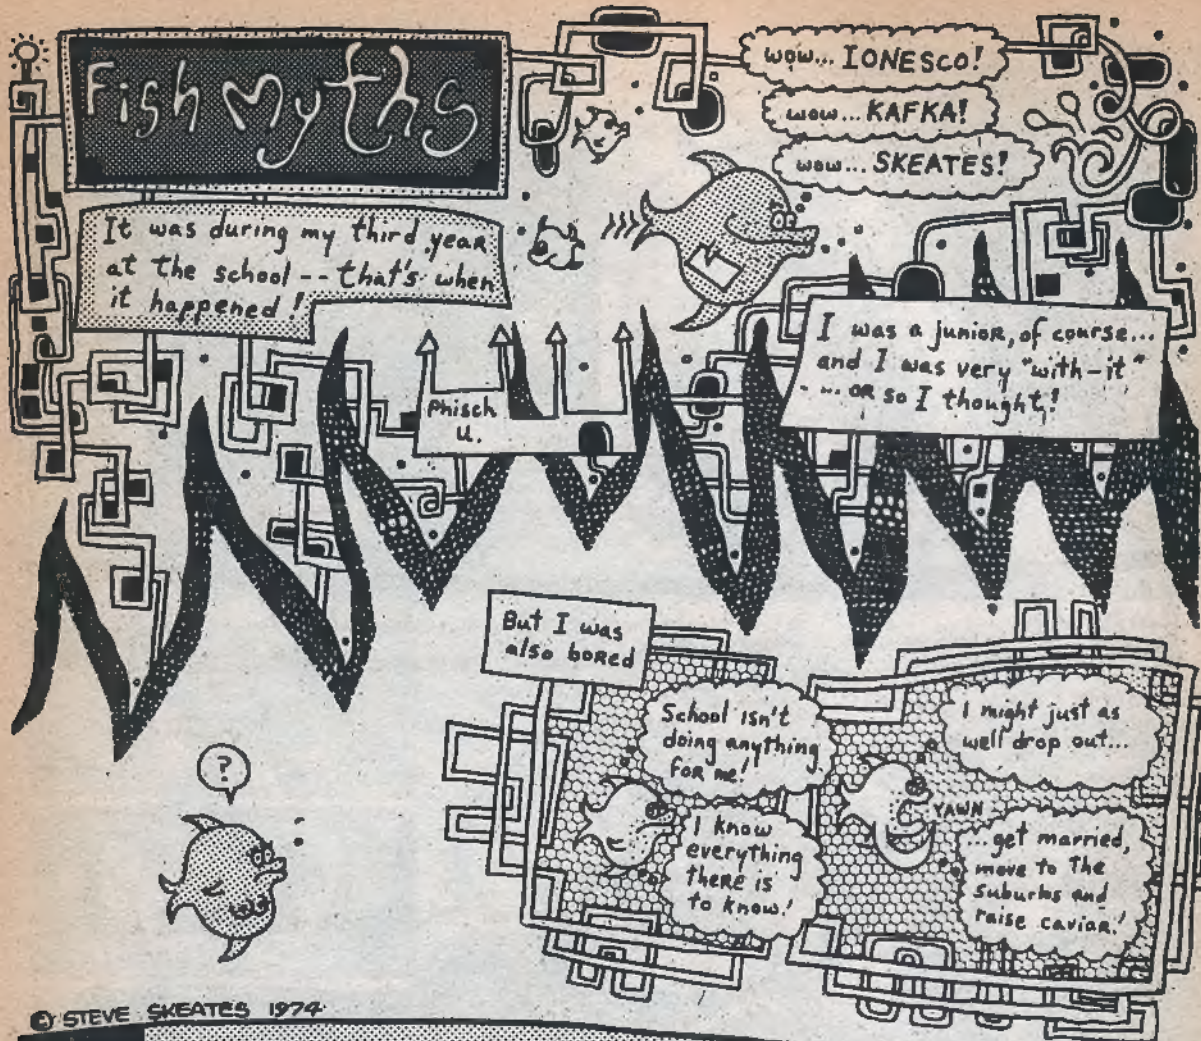 Fish Myths
wow... IONESCO!
wow... KAFKA!
wow... SKEATES!
It was during my third year
at the school -- that's when
it happened!
I was a junior, of course...
and I was very "with-it"
... or so I thought!
Phisch
U.
But I was
also bored
School isn't
doing anything
for me!
I know
everything
there is
to know!
I might just as
well drop out...
YAWN
...get married,
move to the
suburbs and
raise caviar!
?
© STEVE SKEATES 1974